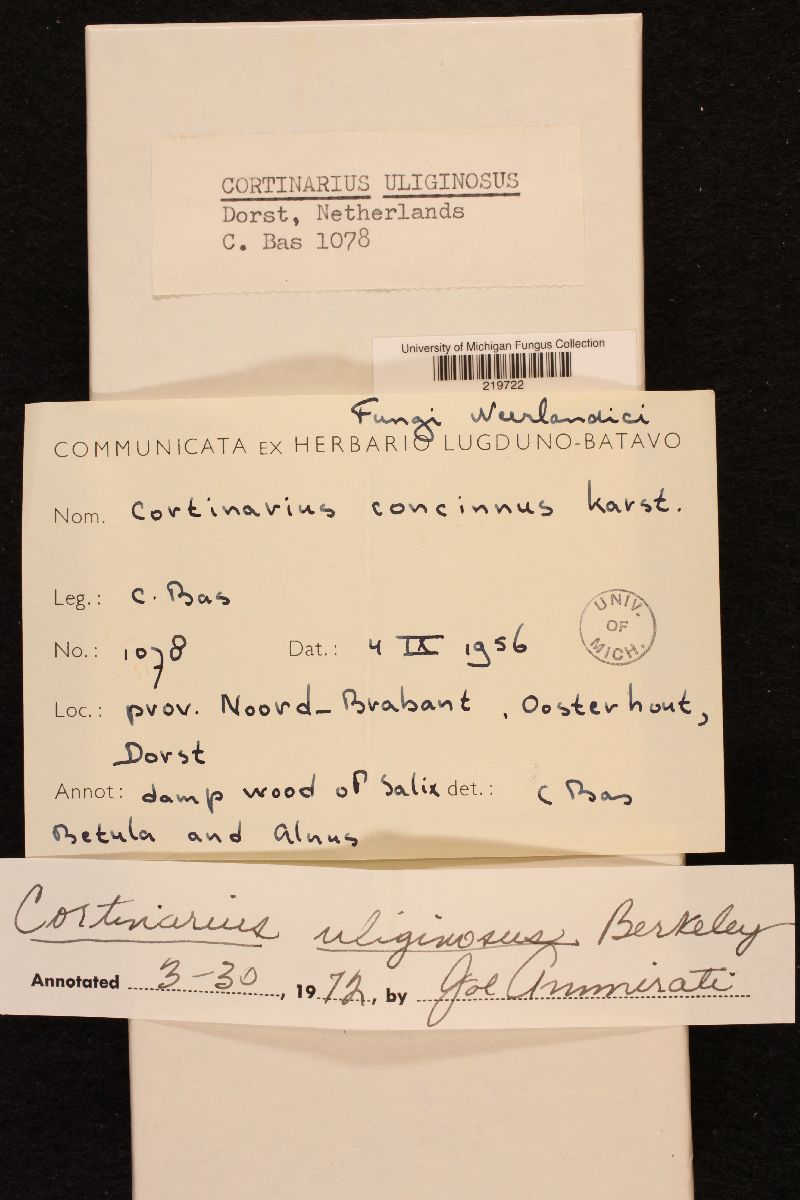 CORTINARIUS ULIGINOSUS
Dorst, Netherlands
C. Bas 1078
University of Michigan Fungus Collection
219722
Fungi Neerlandici
COMMUNICATA EX HERBARIO LUGDUNO-BATAVO
Nom. Cortinarius concinnus Karst.
Leg.: C. Bas
No.: 1078 Dat.: 4 IX 1956
UNIV.
OF
MICH.
Loc.: prov. Noord-Brabant, Oosterhout,
Dorst
Annot: damp wood of Salix det.: C Bas
Betula and Alnus
Cortinarius uliginosus Berkeley
Annotated 3-30, 1972, by Joe Ammirati